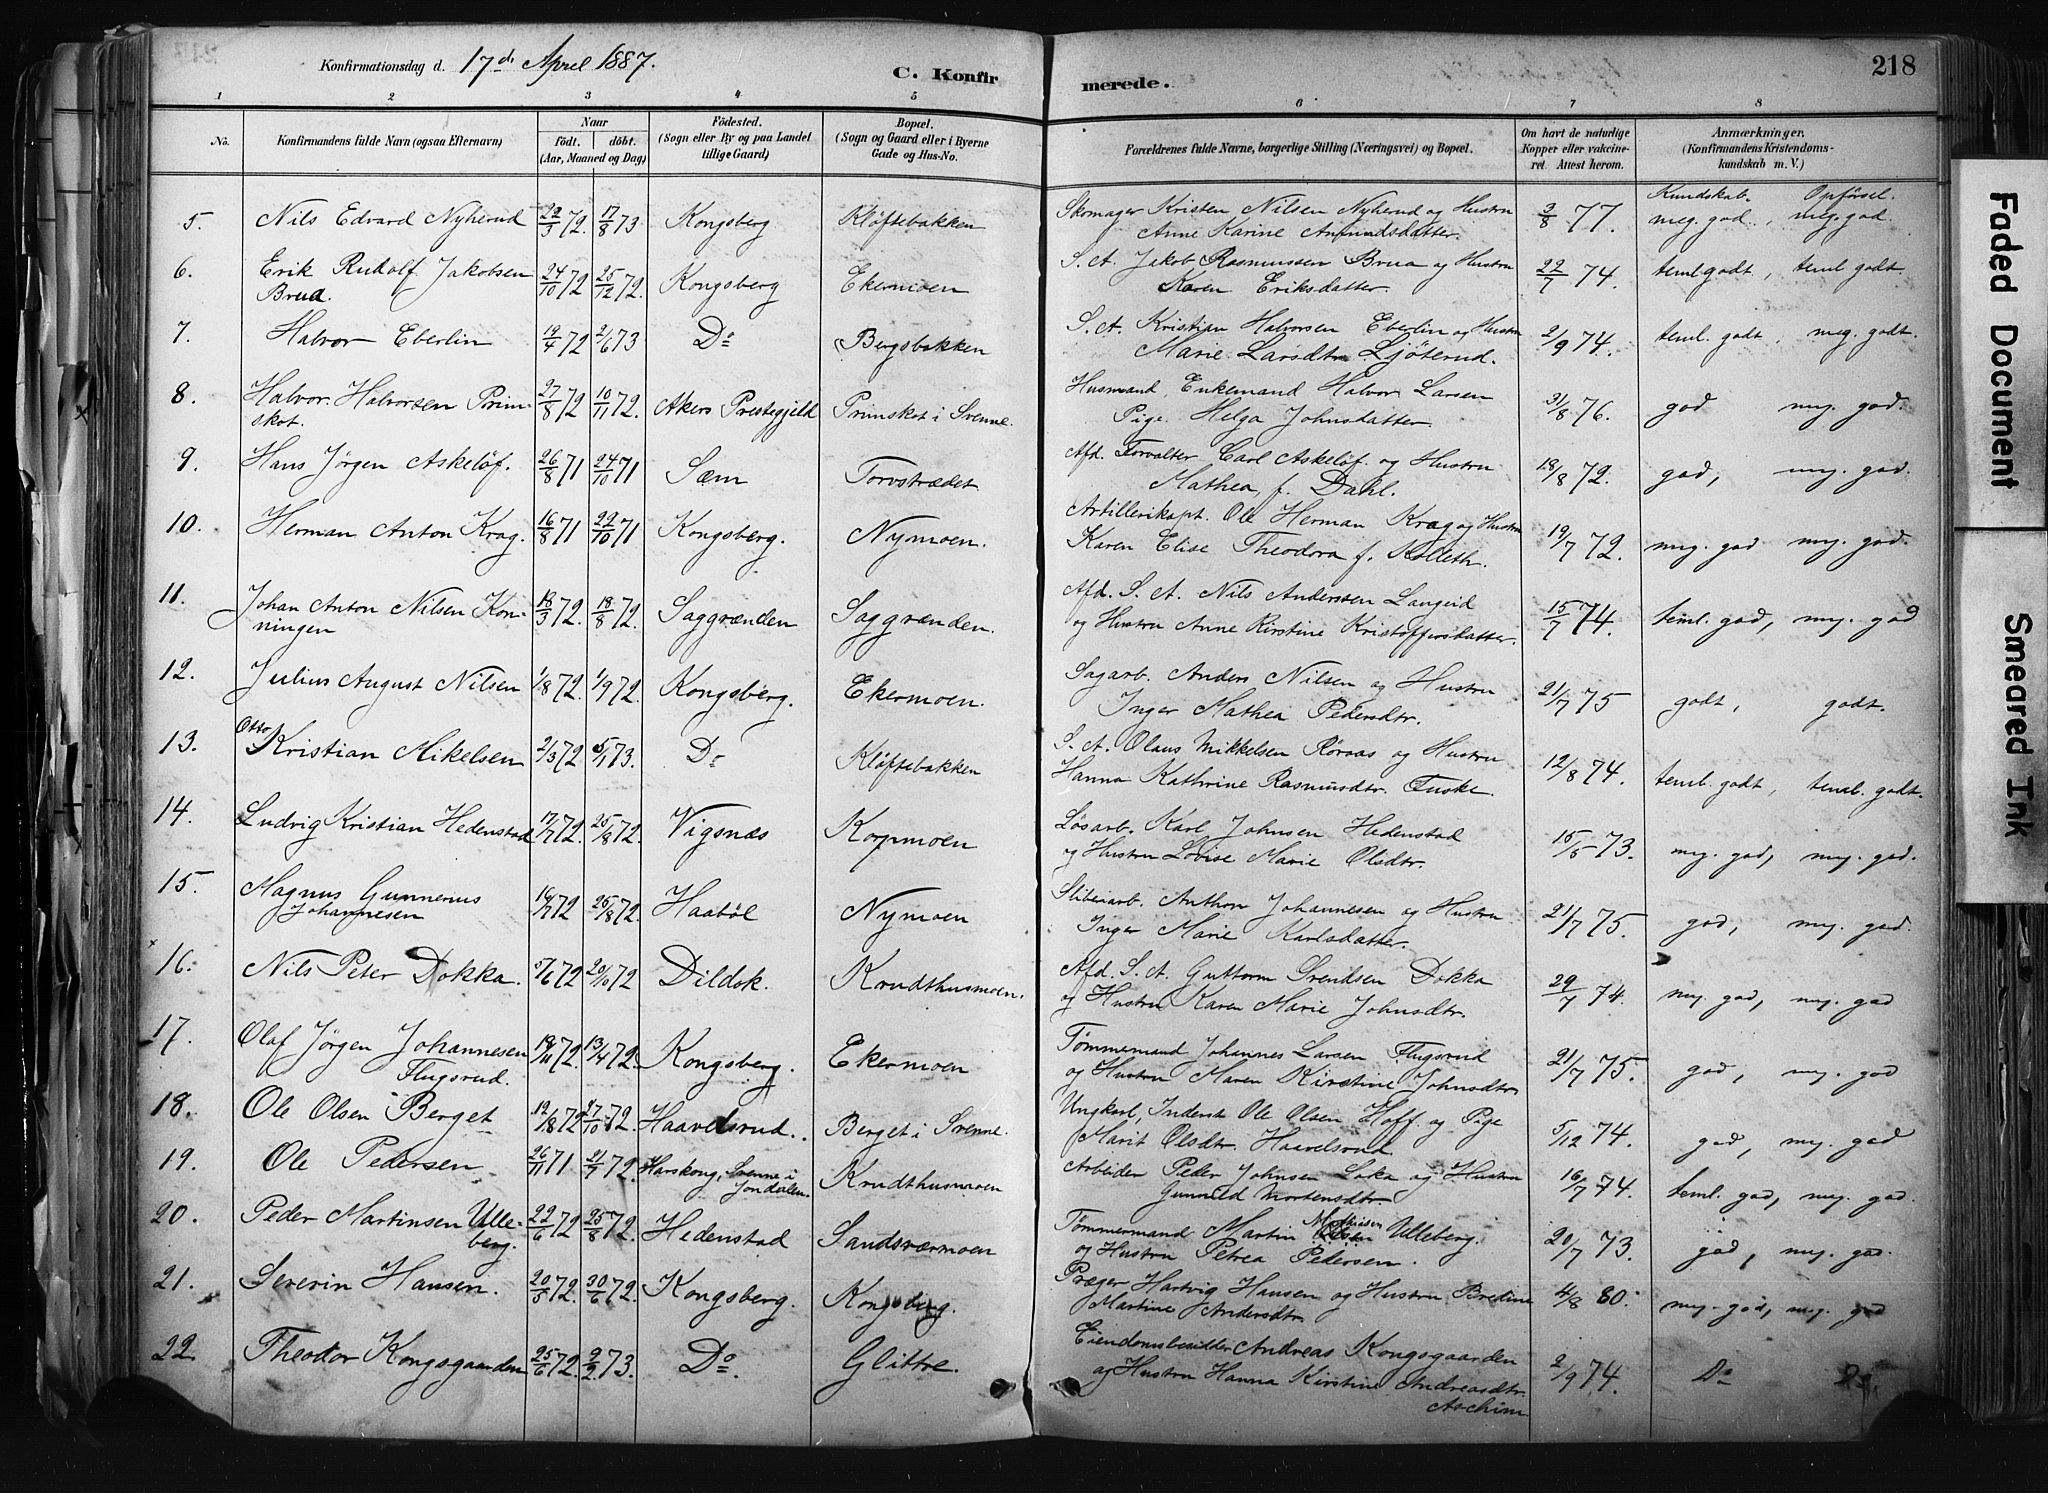 Konfirmationsdag d. 17de April 1887. C. Konfir merede. 218
1 2 3 4 5 6 7 8
No. Konfirmandens fulde Navn (ogsaa Efternavn) Naar født. døbt. (Aar, Maaned og Dag) Födested. (Sogn eller By og paa Landet tillige Gaard) Bopæl. (Sogn og Gaard eller i Byerne Gade og Hus-No. Forældrenes fulde Navne, borgerlige Stilling (Næringsvei) og Bopæl. Om havt de naturlige Kopper eller vakcineret. Attest herom. Anmærkninger. (Konfirmandens Kristendomskundskab m. V.)
Kundskab. Opførsel.
5. Nils Edvard Nyherud 22/3 72. 17/8 73 Kongsberg Kløftebakken Skomager Kristen Nilsen Nyherud og Hustru 3/8 77 meg. god, meg. god.
Anne Karine Amundsdatter.
6. Erik Rudolf Jakobsen 24/10 72 25/12 72. Kongsberg Ekermoen S. A. Jakob Rasmussen Brua og Hustru 22/7 74. teml godt, teml godt.
Brua. Karen Eriksdatter.
7. Halvor Eberlin 19/4 72 2/6 73 Do Bergsbakken S. A. Kristian Halvorsen Eberlin og Hustru 2/9 74. teml. godt, meg. godt.
Marie Larsdtr. Ljøterud.
8. Halvor Halvorsen Prim- 27/8 72 10/11 72. Akers Prestegjeld Primskot i Svenne. Husmand, Enkemand Halvor Larsen 31/8 76. god meg. god.
skot. Pige Helga Johnsdatter
9. Hans Jörgen Askelöf. 26/8 71 24/10 71 Sæm Torvstrædet Afd. Forvalter Carl Askelöf og Hustru 18/8 72. god, meg. god.
Mathea f. Dahl.
10. Herman Anton Krag. 16/8 71 22/10 71 Kongsberg. Nymoen. Artillerikapt. Ole Herman Krag og Hustru 19/7 72. meg. god meg. god.
Karen Elise Theodora f. Kolleth.
11. Johan Anton Nilsen Kon- 18/3 72. 18/8 72. Saggrænden Saggrænden. Afd. S. A. Nils Anderssen Langeid 15/7 74. teml. god, meg. god
ningen og Hustru Anne Kirstine Kristoffersdatter.
12. Julius August Nilsen 1/8 72. 1/9 72. Kongsberg. Ekermoen. Sagarb. Anders Nilsen og Hustru 21/7 75 godt, godt.
Inger Mathea Pedersdtr.
13. Otto Kristian Mikelsen 2/3 72 5/1 73. Do Kløftebakken S. A. Olaus Mikkelsen Røraas og Hustru 12/8 74. teml. godt, teml. godt.
Hanna Kathrine Rasmusdtr. Fuske.
14. Ludvig Kristian Hedenstad 17/7 72. 25/8 72. Vigsnæs Korpmoen Løsarb. Karl Johnsen Hedenstad 15/5 73. meg. god, meg. god.
og Hustru Lovise Marie Olsdtr.
15. Magnus Gunnerius 14/7 72 25/8 72. Haaböl Nymoen Sliberiarb. Anthon Johannesen og Hustru 21/7 75. god, meg. god.
Johannesen Inger Marie Karlsdatter.
16. Nils Peter Dokka. 5/6 72 20/10 72 Dildok. Krudthusmoen. Afd. S. A. Guttorm Svendsen Dokka 29/7 74. meg. god, meg. god
og Hustru Karen Marie Johnsdtr.
17. Olaf Jörgen Johannesen 18/11 72. 13/4 72. Kongsberg. Ekermoen Tømmermand Johannes Larsen Flugsrud 21/7 75. god, meg. god
Flugsrud. og Hustru Maren Kirstine Johnsdtr.
18. Ole Olsen Berget 12/8 72 27/10 72. Haavelsrud. Berget i Svenne. Ungkarl, Inderst Ole Olsen Hoff og Pige 5/12 74. god, meg. god
Marit Olsdtr. Haavelsrud.
19. Ole Pedersen 26/11 71 21/7 72. Harskong, Svenne i Krudthusmoen Arbeider Peder Johnsen Loka og Hustru 16/7 74. teml. god, meg. god.
Jondalen. Gunnild Mortensdtr.
20. Peder Martinsen Ulle- 22/6 72 25/8 72. Hedenstad Sandsværmoen Tømmermand Martin Mathisen Ulleberg. 20/7 73. god, meg. god.
berg. og Hustru Petrea Pedersen.
21. Severin Hansen. 20/5 72. 30/6 72. Kongsberg. Kongsberg. Præger Hartvig Hansen og Hustru Bredine 4/8 80. meg. god, meg. god
Martine Andersdtr
22. Theodor Kongsgaarden 25/6 72. 2/2 73. Do. Glittre. Eiendomsbesidder Andreas Kongsgaarden 2/9 74. Do Do.
og Hustru Hanna Kirstine Andreasdtr.
Aschim
Faded Document
Smeared Ink